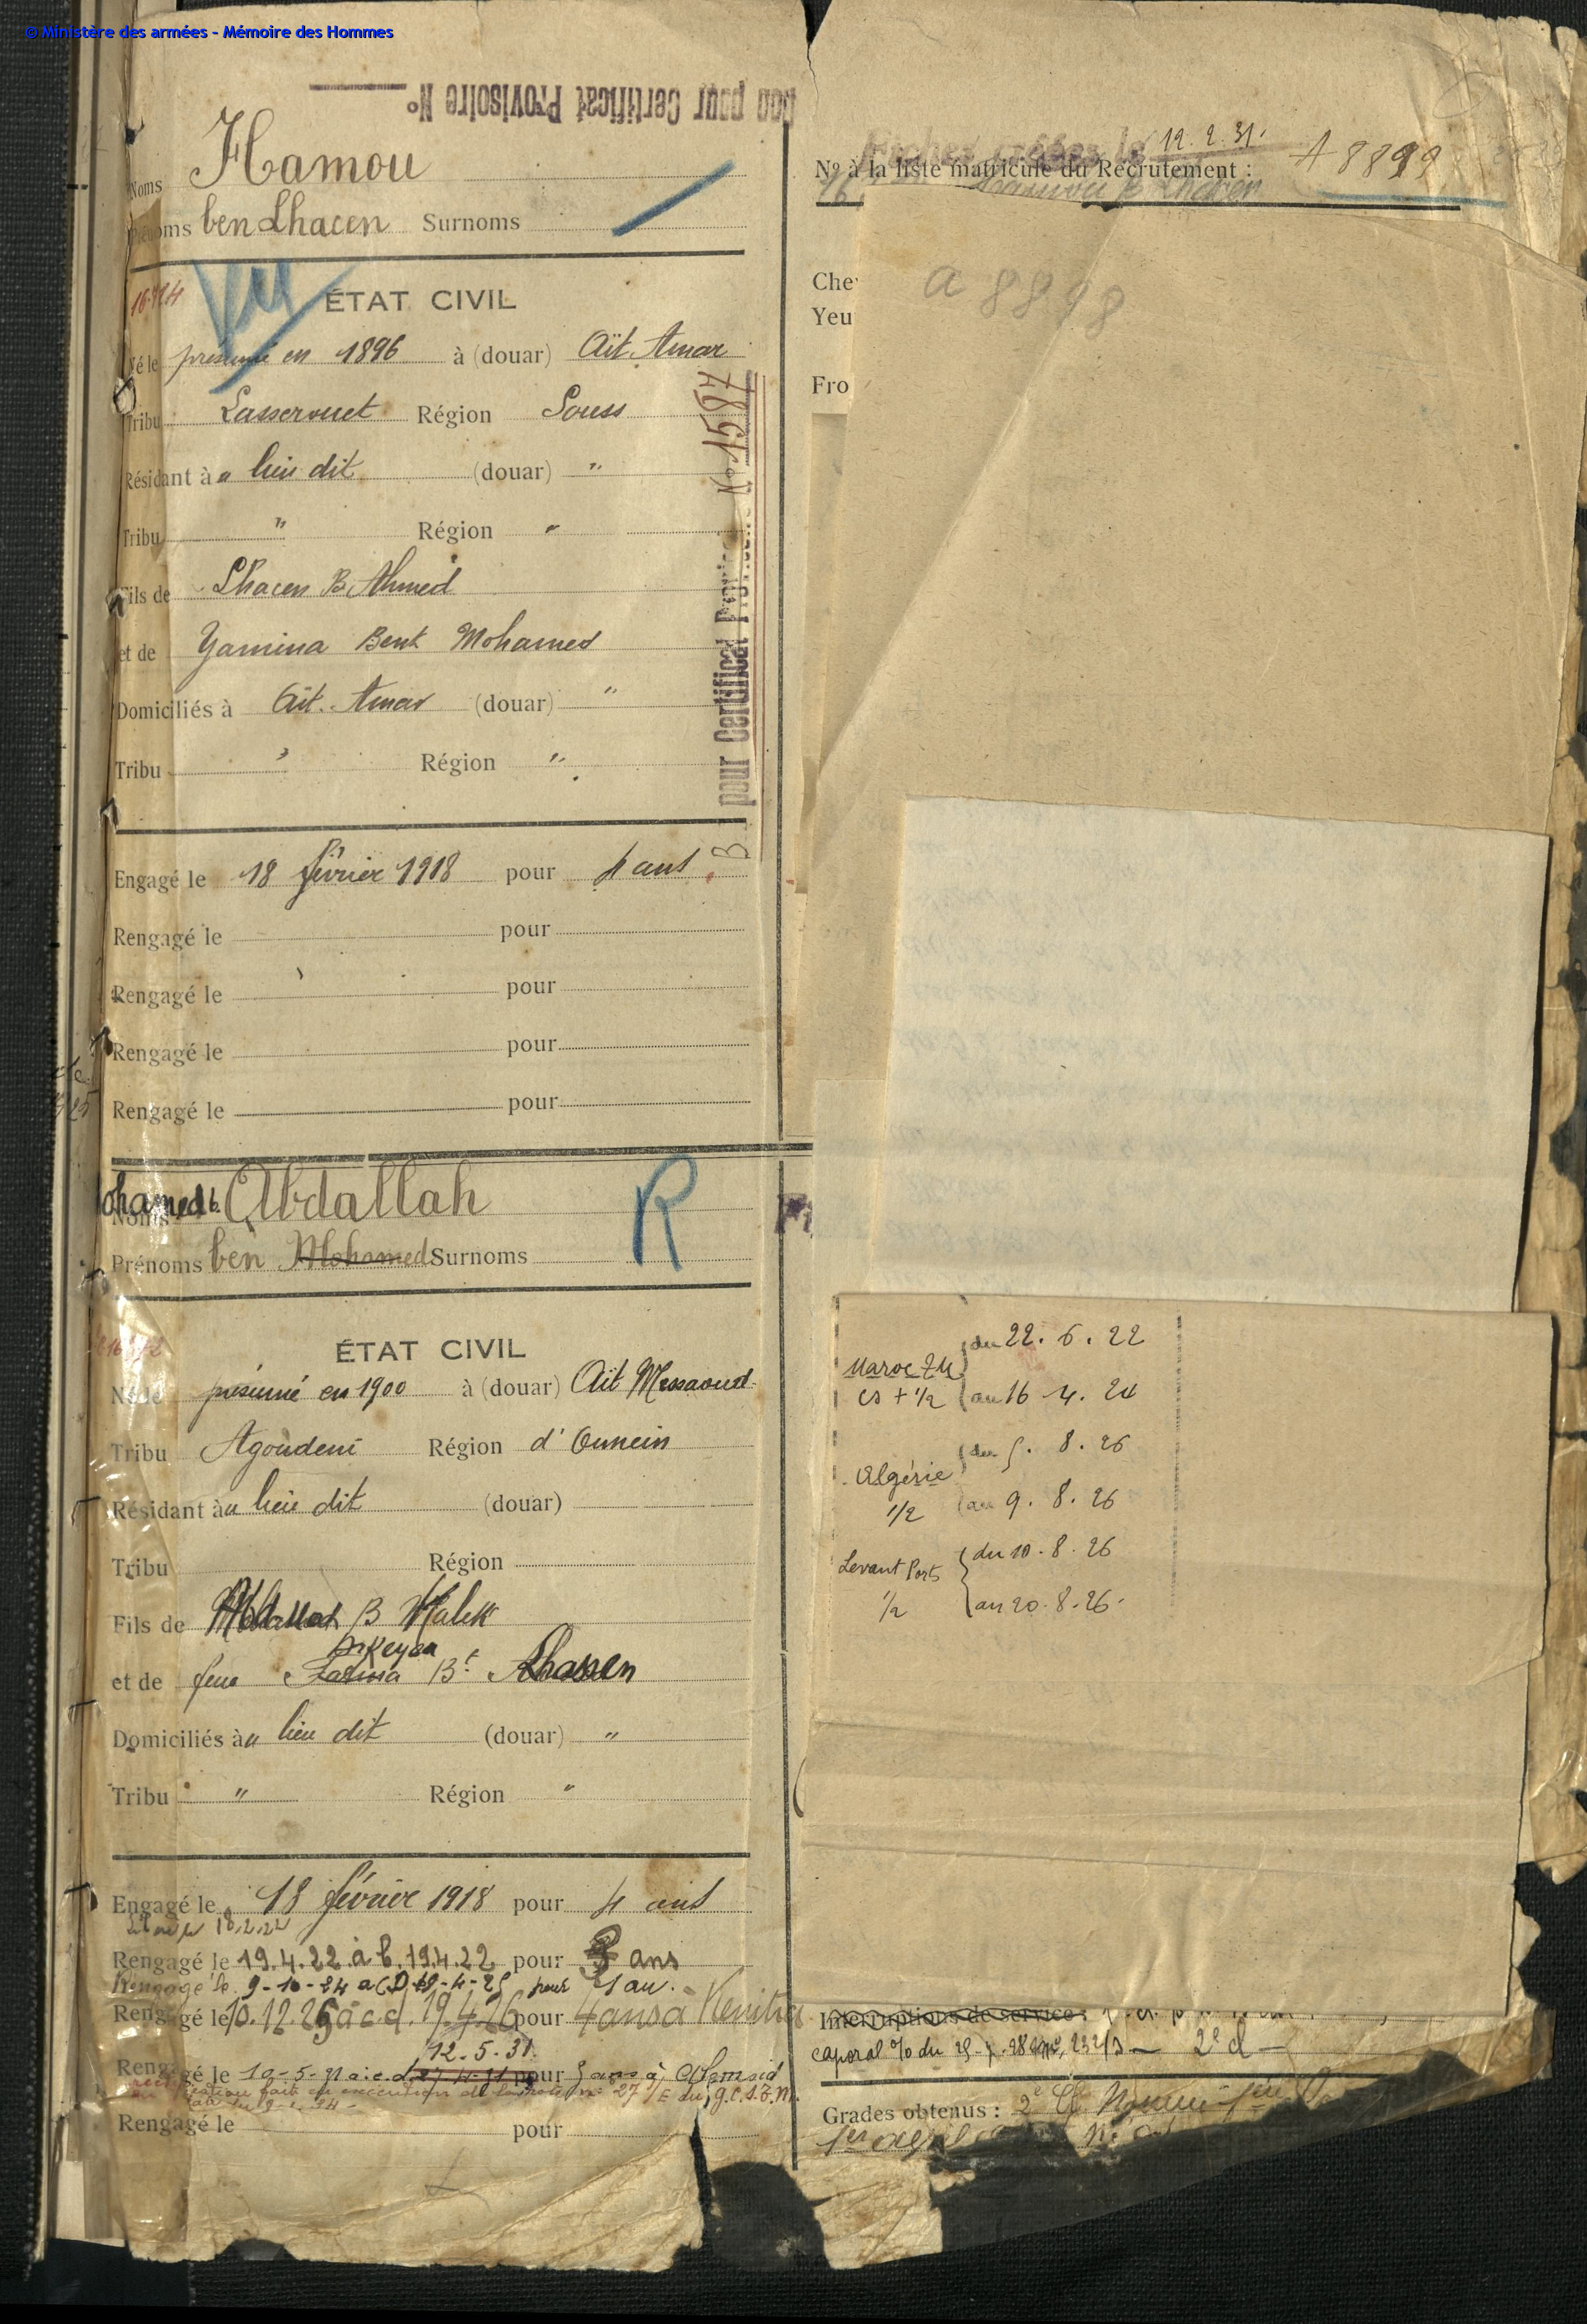 © Ministère des armées - Mémoire des Hommes
Bon pour Certificat Provisoire N°
Noms Hamou
Prénoms ben Lhacen Surnoms
Vu
ÉTAT CIVIL
Né le présumé en 1896 à (douar) Aït. Amar
Tribu Lasserouet Région Souss
Résidant à au lieu dit (douar) "
Tribu " Région "
Fils de Lhacen B. Ahmed
et de Yamina Bent Mohamed
Domiciliés à Aït. Amar (douar) "
Tribu " Région "
B pour Certificat Provisoire N° 1587
Engagé le 18 février 1918 pour 4 ans
Rengagé le pour
Rengagé le pour
Rengagé le pour
Rengagé le pour
Noms Mohamed b. Abdallah
Prénoms ben Mohamed Surnoms
R
ÉTAT CIVIL
Né le présumé en 1900 à (douar) Aït Messaoud
Tribu Agoudeni Région d'Ounein
Résidant à au lieu dit (douar)
Tribu Région
Fils de B Malek
et de feue Fatima Bt Lhassen
Domiciliés à au lieu dit (douar) "
Tribu " Région "
Engagé le 18 février 1918 pour 4 ans
Rengagé le 19.4.22 à c. 19.4.22 pour 3 ans
Rengagé le 9-10-24 a C.D 19-4-25 pour 1 an.
Rengagé le 10.12.25 à c.d. 19.4.26 pour 4 ans à Kenitra
12.5.31
Rengagé le 10-5-31 a.c.d. pour 5 ans à
Rengagé le pour
12.2.31.
N° à la liste matricule du Recrutement : A 8899
Hamou B Lhacen
a 8898
Che
Yeu
Fro
Maroc ZM
CS + 1/2
du 22. 6. 22
au 16 4. 24
Algérie
1/2
du 5. 8. 26
au 9. 8. 26
Levant Ports
1/2
du 10. 8. 26
au 20. 8. 26.
Interruptions de service :
caporal % du
Grades obtenus : 2e Cl. Nommé